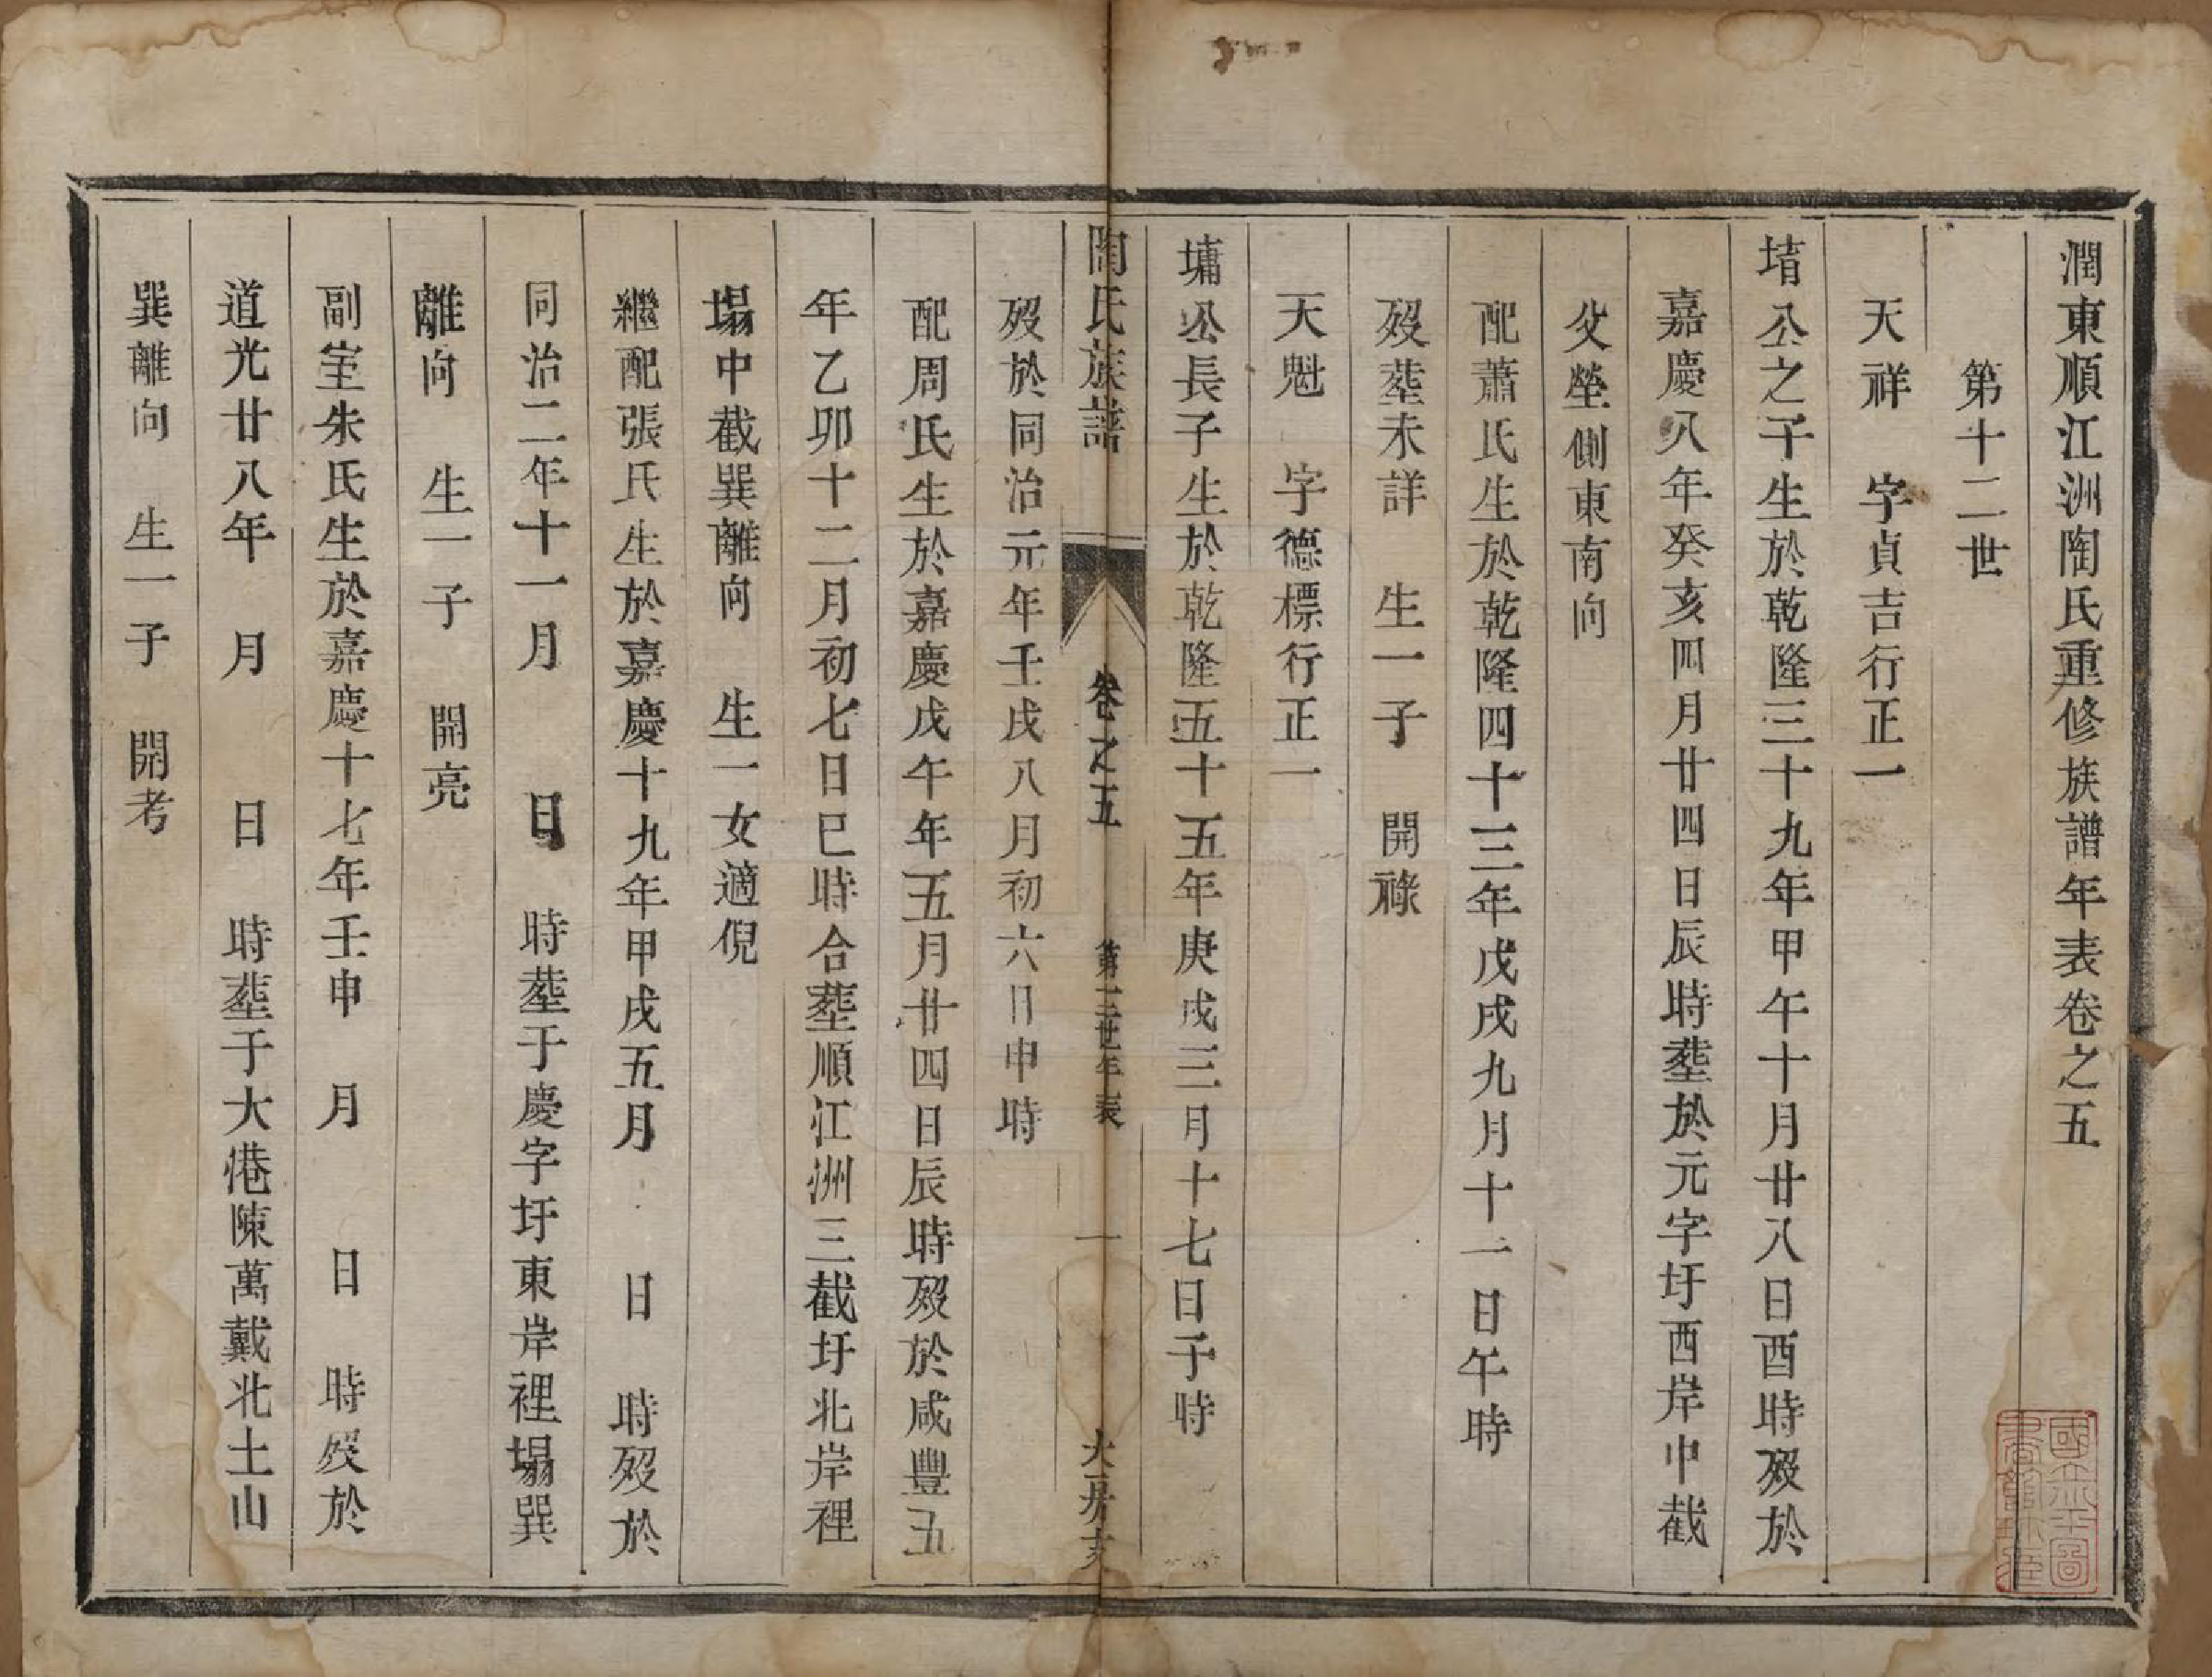 潤東順江洲陶氏重修族譜年表卷之五
第十二世
天祥　字貞吉行正一
堉公之子生於乾隆三十九年甲午十月廿八日酉時歿於
嘉慶八年癸亥四月廿四日辰時塟於元字圩西岸中截
父塋側東南向
配蕭氏生於乾隆四十三年戊戌九月十一日午時
歿塟未詳　生一子　開祿
天魁　字德標行正一
墉公長子生於乾隆五十五年庚戌三月十七日子時
陶氏族譜　卷之五　第十二世年表　一　大房支
歿於同治元年壬戌八月初六日申時
配周氏生於嘉慶戊午年五月廿四日辰時歿於咸豐五
年乙卯十二月初七日巳時合塟順江洲三截圩北岸裡
塌中截巽離向　生一女適倪
繼配張氏生於嘉慶十九年甲戌五月　日　時歿於
同治二年十一月　日　時塟于慶字圩東岸裡塌巽
離向　生一子　開亮
副室朱氏生於嘉慶十七年壬申　月　日　時歿於
道光廿八年　月　日　時塟于大港陳萬戴北土山
巽離向　生一子　開考